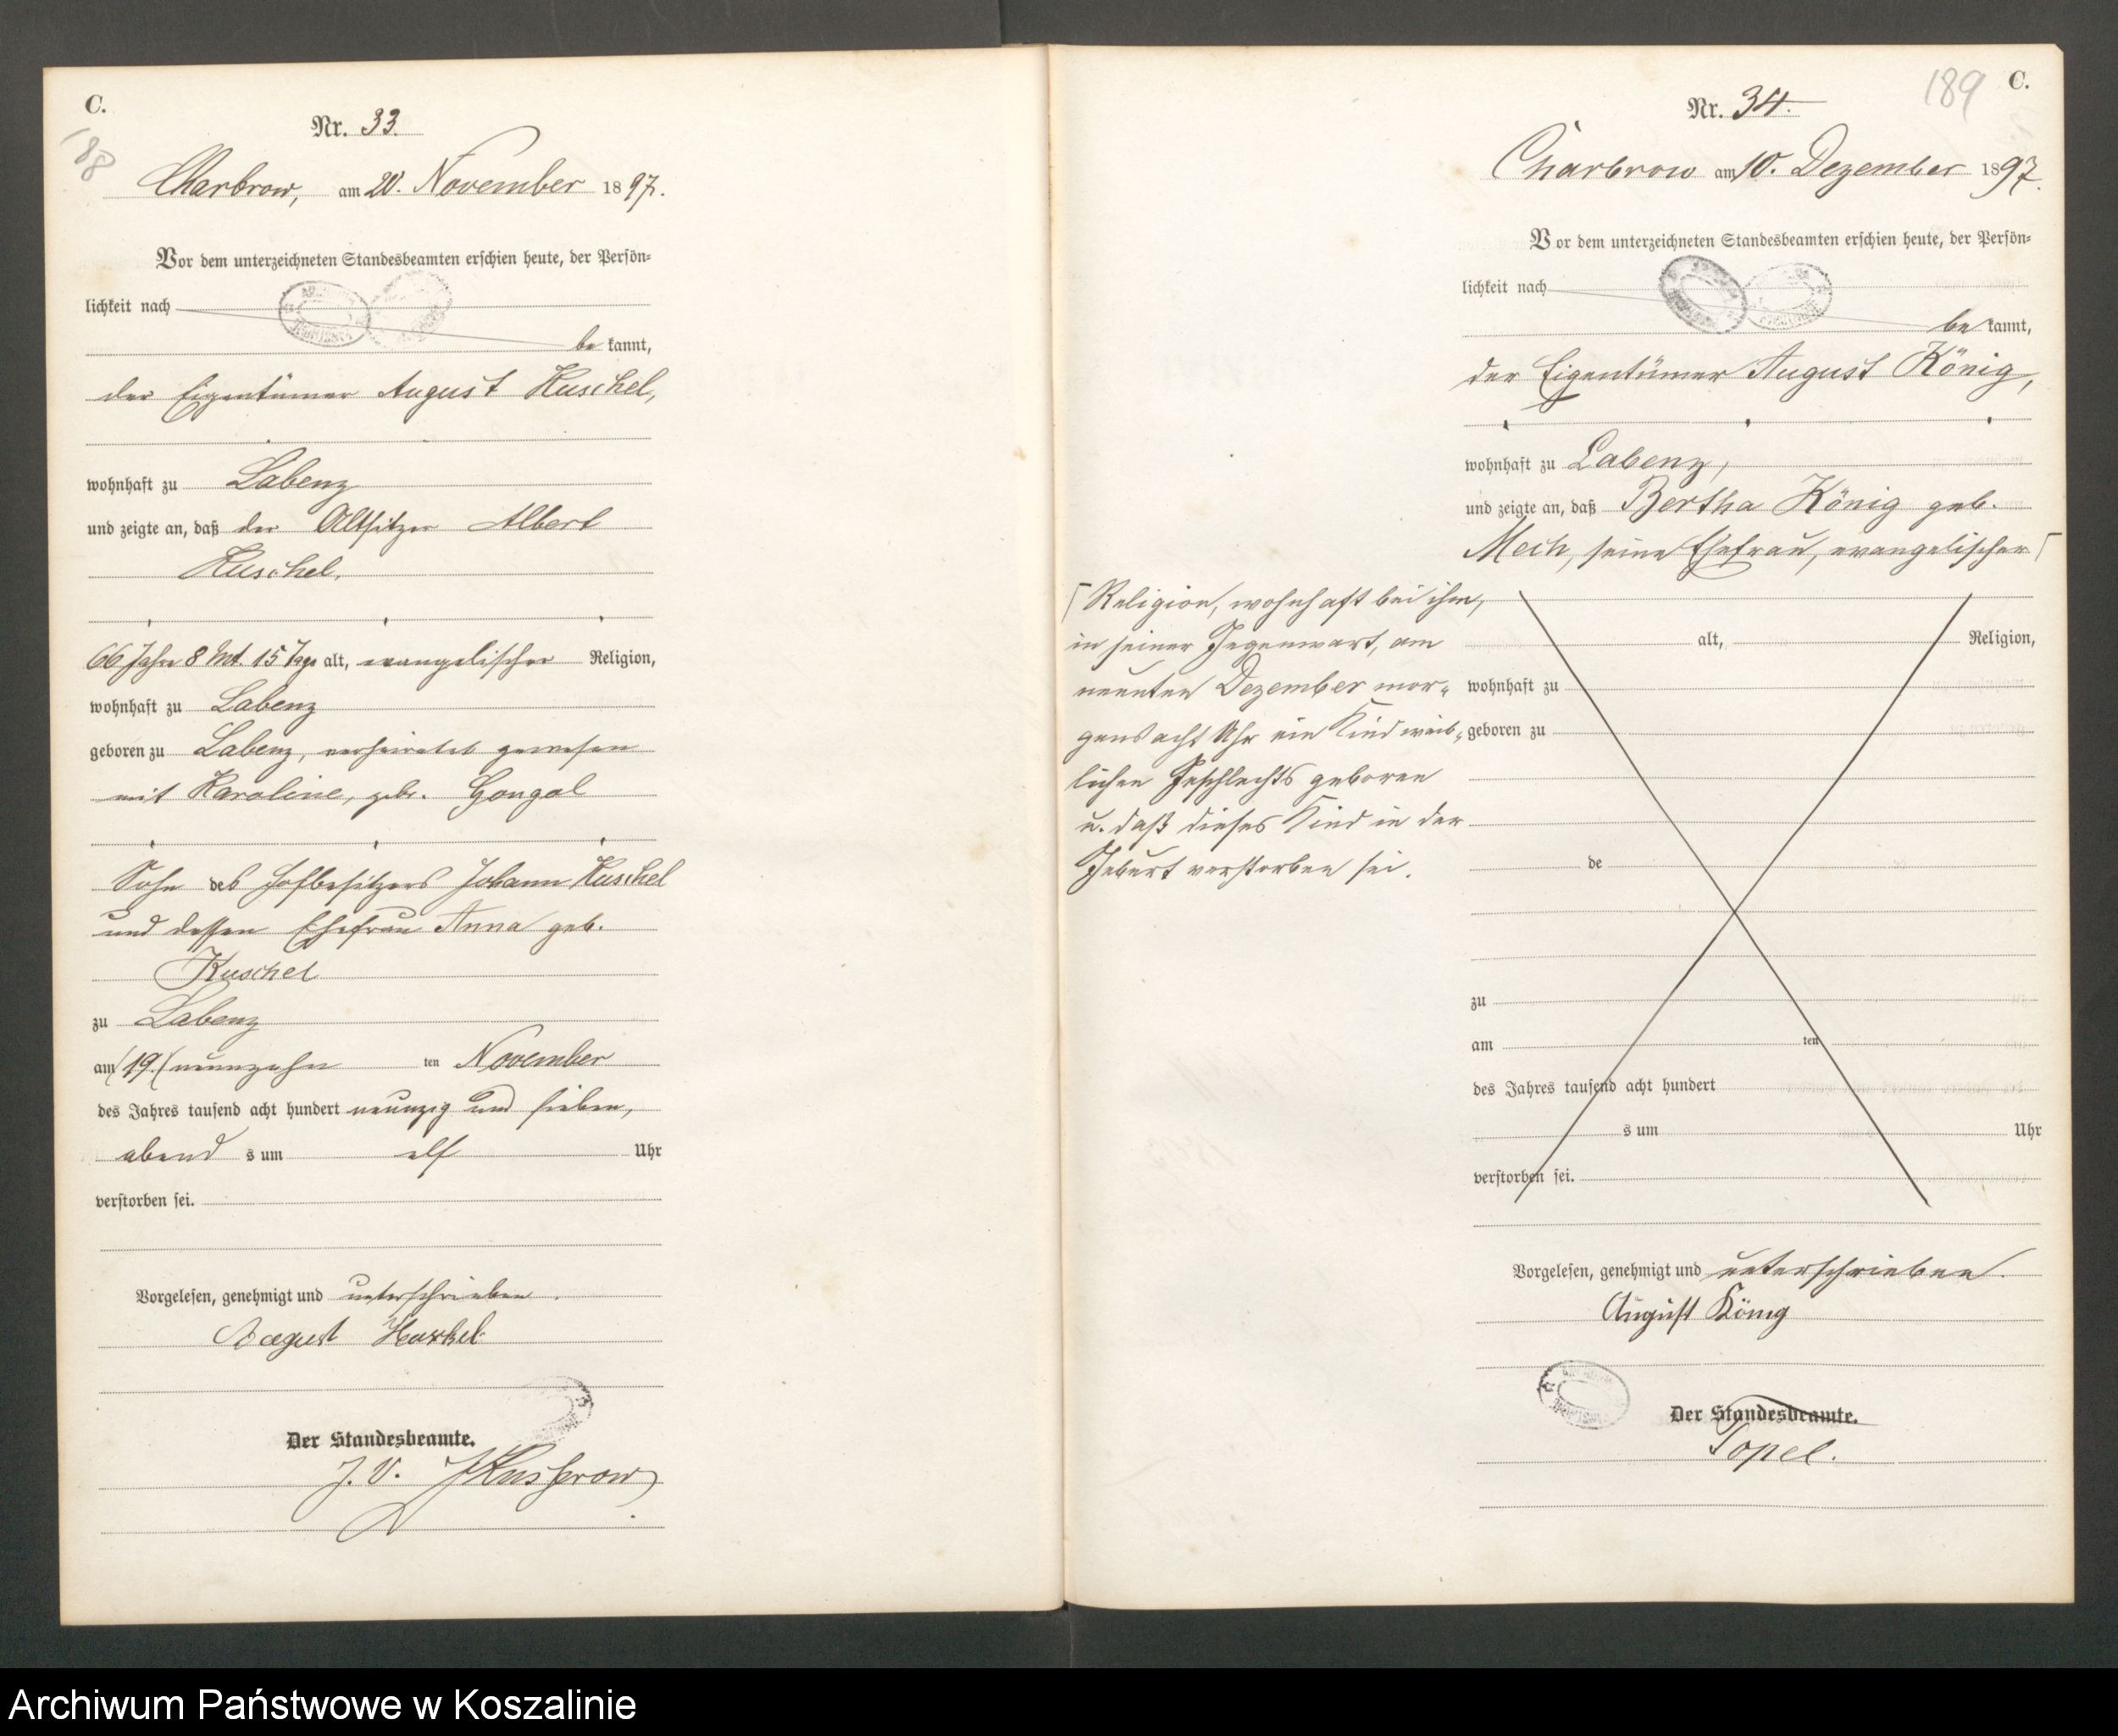 C.
188
Nr. 33.
Charbrow, am 20. November 1897.
Vor dem unterzeichneten Standesbeamten erschien heute, der Persön-
lichkeit nach
be kannt,
der Eigentümer August Kuschel,
wohnhaft zu Labenz
und zeigte an, daß der Altsitzer Albert
Kuschel,
66 Jahre 8 Mt. 15 Tage alt, evangelischer Religion,
wohnhaft zu Labenz
geboren zu Labenz, verheiratet gewesen
mit Karoline, geb. Gongal
Sohn des Hofbesitzers Johann Kuschel
und dessen Ehefrau Anna geb.
Kuschel
zu Labenz
am (19.) neunzehn ten November
des Jahres tausend acht hundert neunzig und sieben,
abend s um elf Uhr
verstorben sei.
Vorgelesen, genehmigt und unterschrieben.
August Kuschel
Der Standesbeamte.
J. V.
189
C.
Nr. 34.
Charbrow am 10. Dezember 1897.
Vor dem unterzeichneten Standesbeamten erschien heute, der Persön-
lichkeit nach
be kannt,
der Eigentümer August König,
wohnhaft zu Labenz,
und zeigte an, daß Bertha König geb.
Mech, seine Ehefrau, evangelischer
Religion, wohnhaft bei ihm,
in seiner Gegenwart, am
neunten Dezember mor-
gens acht Uhr ein Kind weib-
lichen Geschlechts geboren
u. daß dieses Kind in der
Geburt verstorben sei.
alt, Religion,
wohnhaft zu
geboren zu
de
zu
am ten
des Jahres tausend acht hundert
s um Uhr
verstorben sei.
Vorgelesen, genehmigt und unterschrieben.
August König
Der Standesbeamte.
Topel.
Archiwum Państwowe w Koszalinie